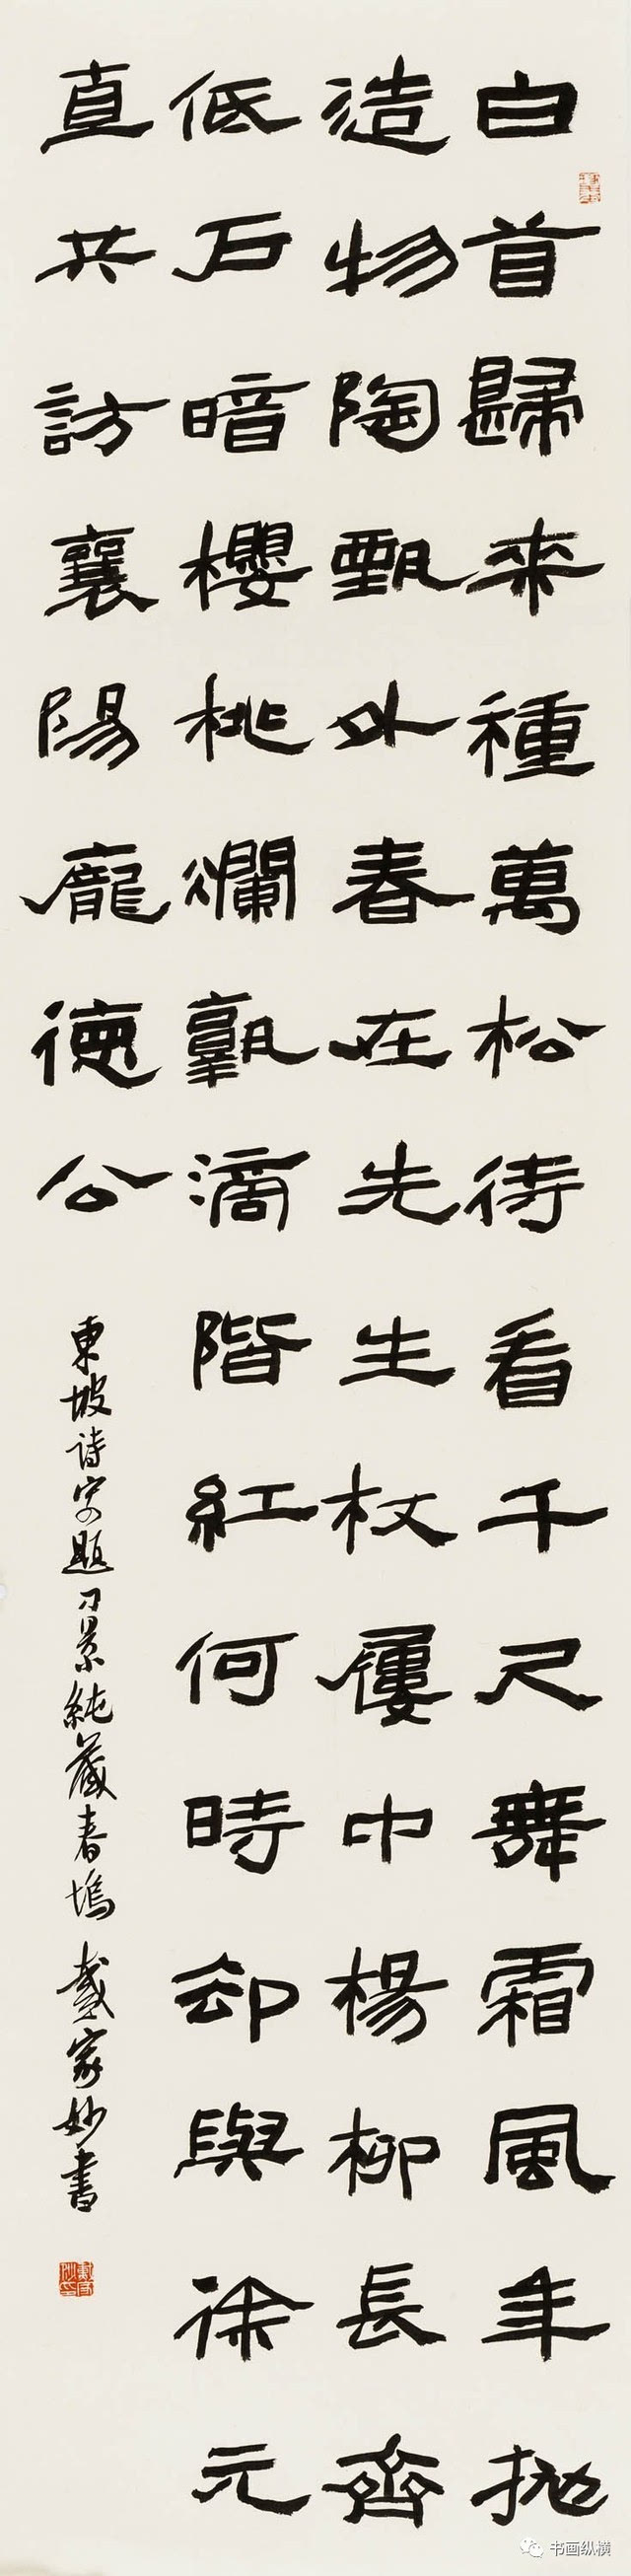 白首歸來種萬松待看千尺舞霜風年抛
造物陶甄外春在先生杖屨中楊柳長齊
低石暗櫻桃爛孰滴階紅何時却與徐元
直共訪襄陽龐德公
東坡詩寄題刁景純藏春塢 戴家妙書
书画纵横